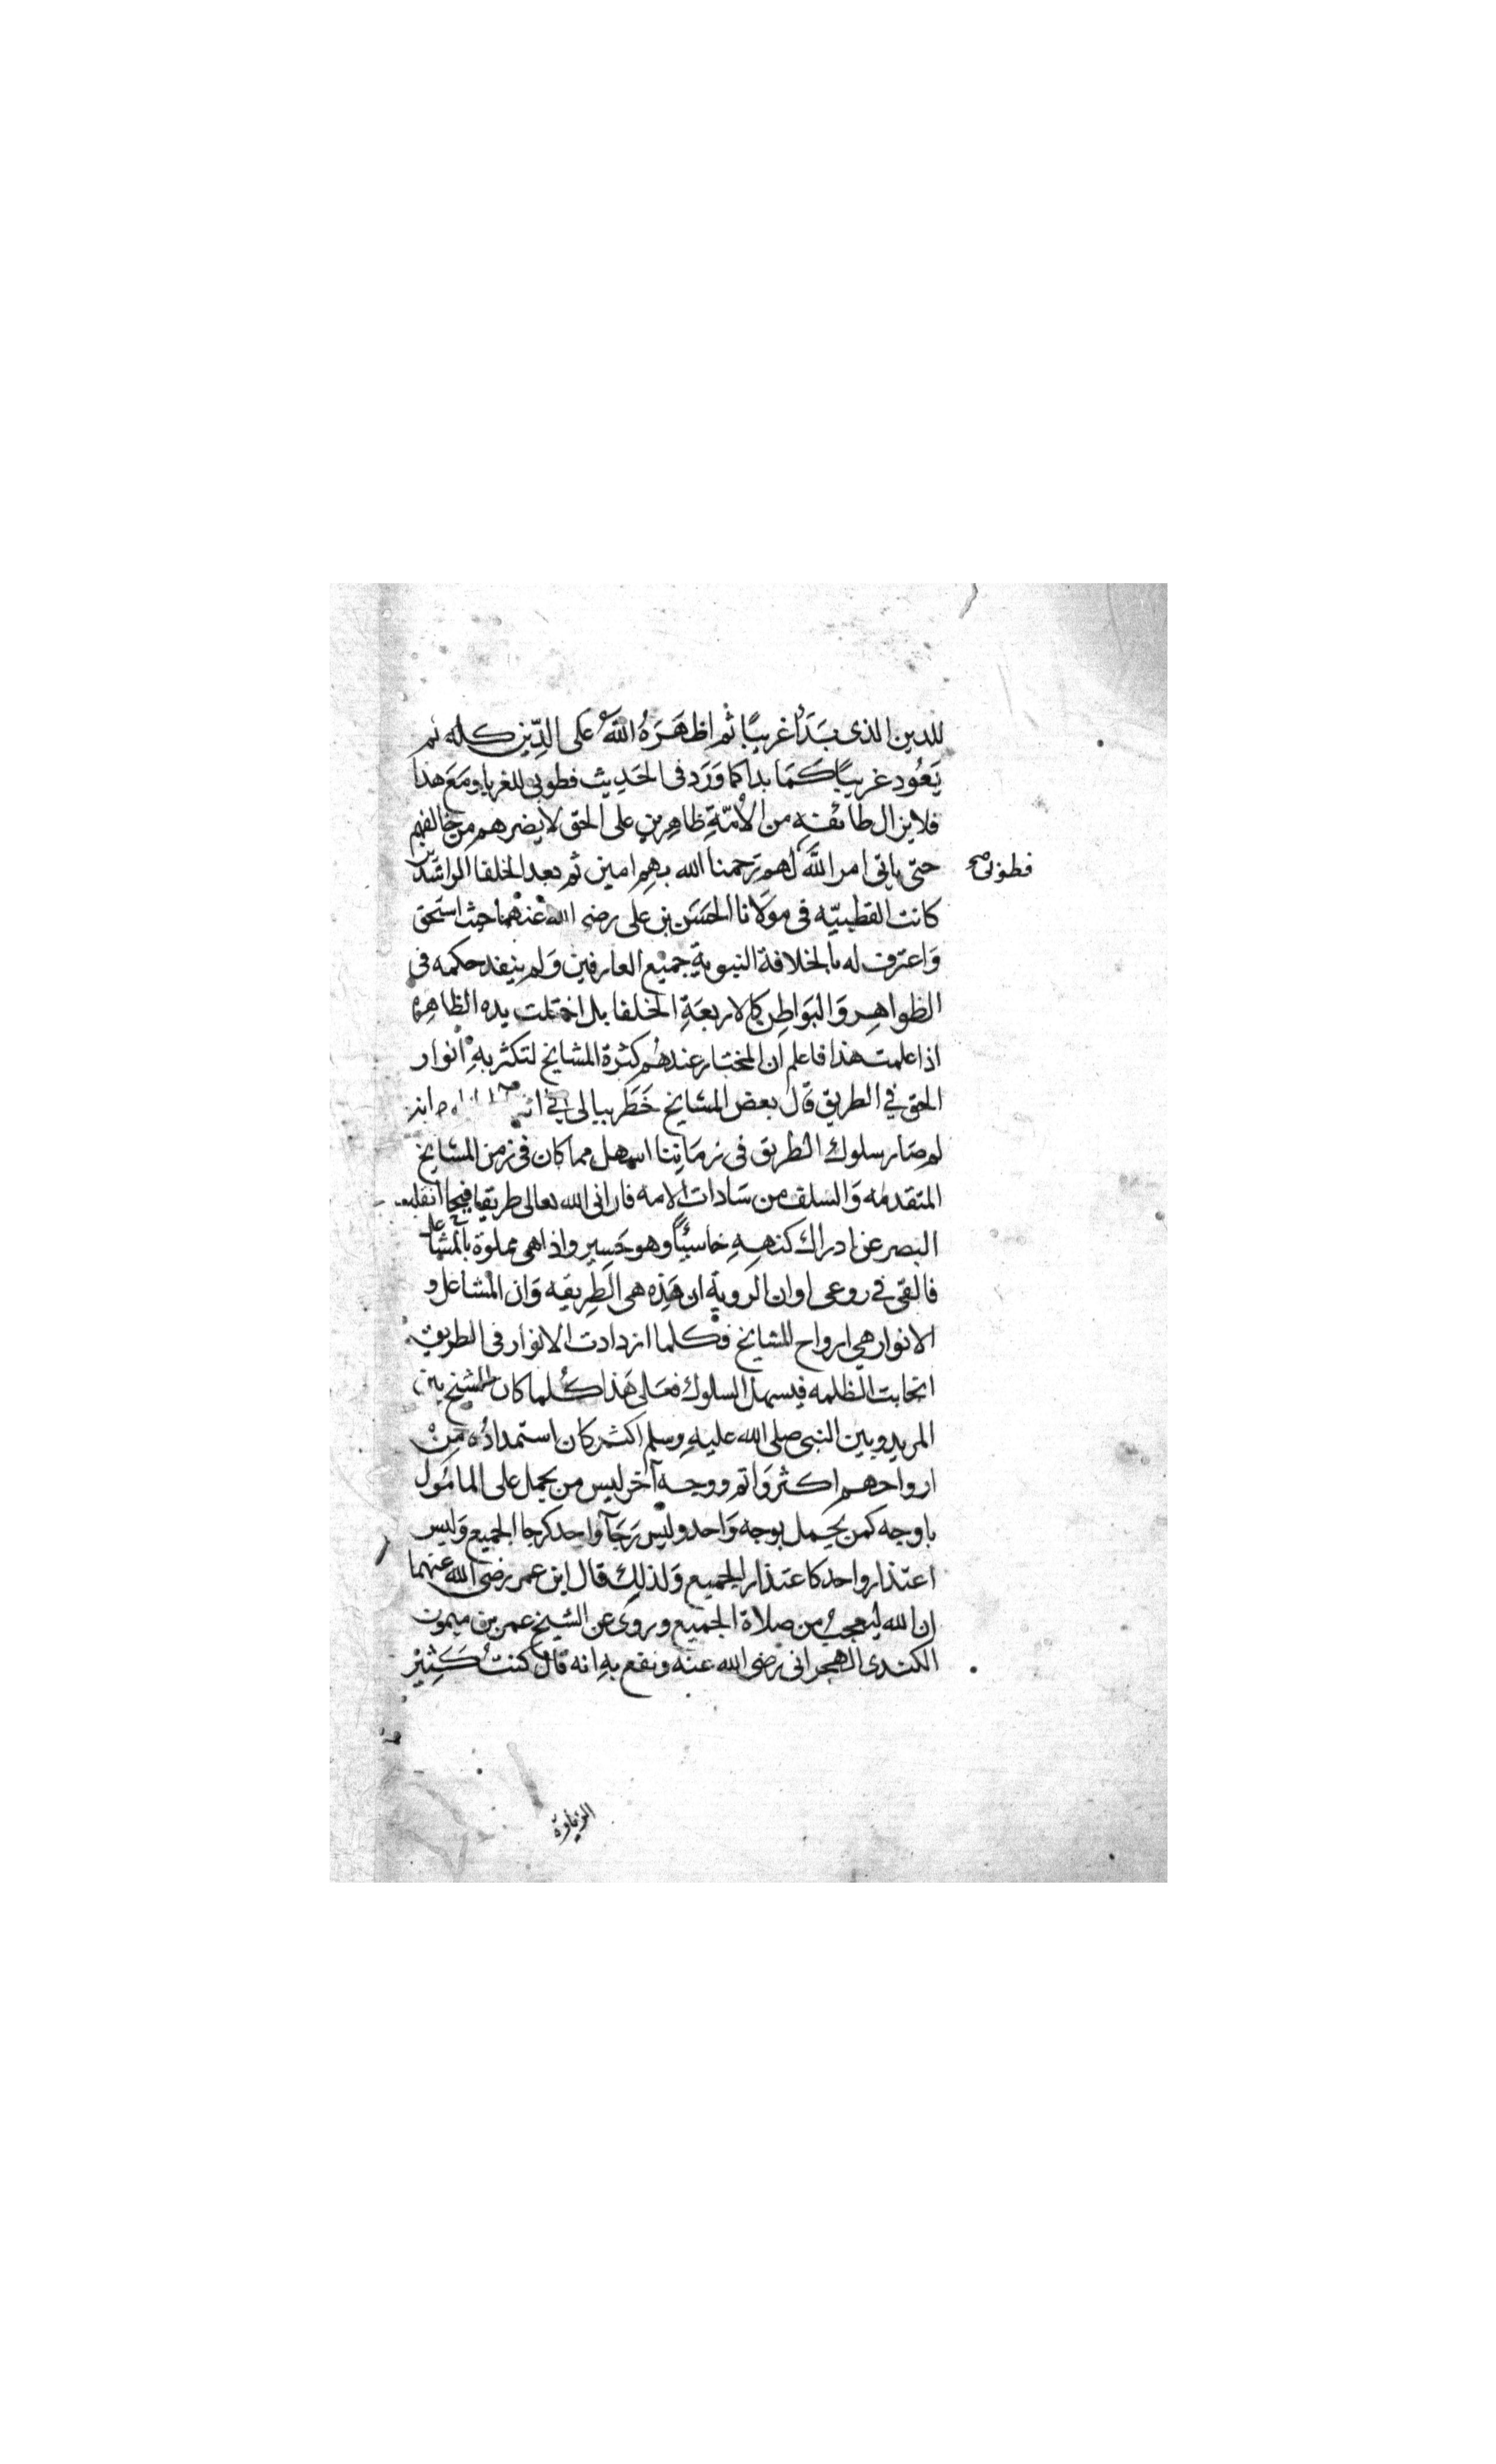 للدين الذى بَدَأَ غريبًا ثم اظهَرَهُ اللهُ عَلى الدِّين كله ثم
يَعُود غريبًا كَمَا بدا كما وَرَد فى الحَديث فطوبى للغربا ومَعَ هذا
فلا يزال طائفة من الأمّةِ ظاهِرين على الحق لا يضرهم من خالفهم
حتى ياتى امر الله لهم ترحمنا الله بهم امين ثم بعد الخلفا الراشدين
فطوبى صح
كانت القطبيّه فى مولانا الحَسَن بن على رضى الله عنهما حيث استحق
وَاعترف له بالخلافة النبوية جميع العارفين وَلم ينفد حكمه فى
الظواهِر وَالبَواطِن كالاربعَةِ الخلفا بل اختلت يده الظاهره
اذا علمت هذا فاعلم ان المختار عندهُم كثرة المشايخ لتكثر بهِ انوار
الحق في الطريق قال بعض المشايخ خَطَر ببالى في
لم صَار سلوك الطريق فى زمَاننا اسهل مما كان فى زمن المشايخ
المتقدمه وَالسلف من سَادات الامه فارانى الله تعالى طريقا فيحا انقلب
البَصر عن ادراك كنههِ خاسئًا وهو حَسِير واذا هى مملوة بالمشاعل
فالقى في روعى اوان الروية ان هَذِه هى الطريقه وَان المشاعل و
الانوار هي ارواح المشايخ فكلما ازدادت الانوار فى الطريق
انجابت الظلمه فيسهل السلوك فعَلى هَذا كُلما كان المشيخ بين
المريد وبين النبى صلى الله عليهِ وسلم اكثر كان استمدادُه مِنْ
ارواحهم اكثر وَاتم ووجه آخر ليس من يحمل على المامُول
باوجه كمن يحمل بوجه وَاحد وليس رَجَآ واحد كرجا الجميع وَليس
اعتذار واحد كاعتذار الجميع وَلذلك قال ابن عمر رضى الله عنهما
ان الله ليعجبُ من صلاة الجميع وروى عن الشيخ عمر بن ميمون
الكندى الهجرانى رضى الله عنه ونفع بهِ انه قال كنتُ كَثِيْر
الزياوة